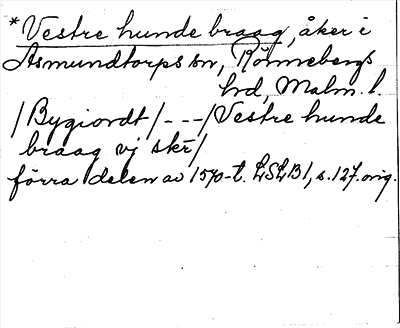 *Vestre hunde braag, åker i
Asmundtorps sn, Rönnebergs
hd, Malm. l.
/Bygiordt/---/Vestre hunde
braag vj skr̄/
förra delen av 1570-t. LSLB1, s. 127. orig.